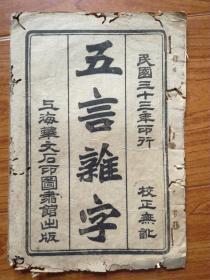 民國三十三年印行
校正無訛
五言雜字
上海華文石印圖書館出版